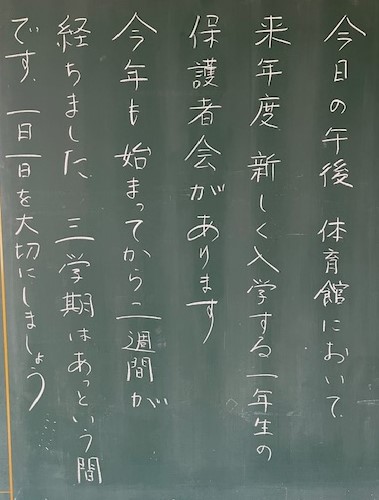 今日の午後 体育館において
来年度 新しく入学する一年生の
保護者会があります
今年も 始まってから二週間が
経ちました 三学期はあっという間
です、一日一日を大切にしましょう